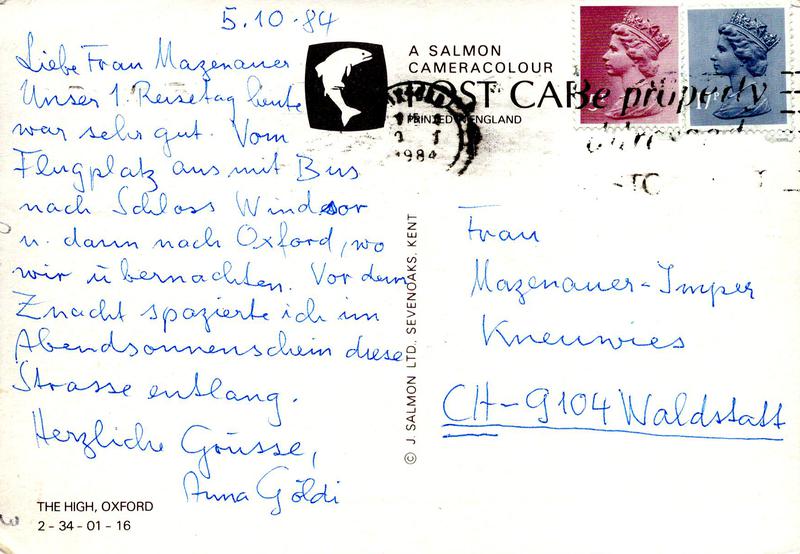 5.10.84
Liebe Frau Mazenauer
Unser 1. Reisetag heute
war sehr gut. Vom
Flugplatz aus mit Bus
nach Schloss Windsor
u. dann nach Oxford, wo
wir übernachten. Vor dem
Znacht spazierte ich im
Abendsonnenschein diese
Strasse entlang.
Herzliche Grüsse,
Anna Göldi
THE HIGH, OXFORD
2-34-01-16
A SALMON
CAMERACOLOUR
POST CAR
PRINTED IN ENGLAND
1984
Be properly
© J. SALMON LTD., SEVENOAKS, KENT
Frau
Mazenauer-Imper
Kneuwies
CH-9104 Waldstatt